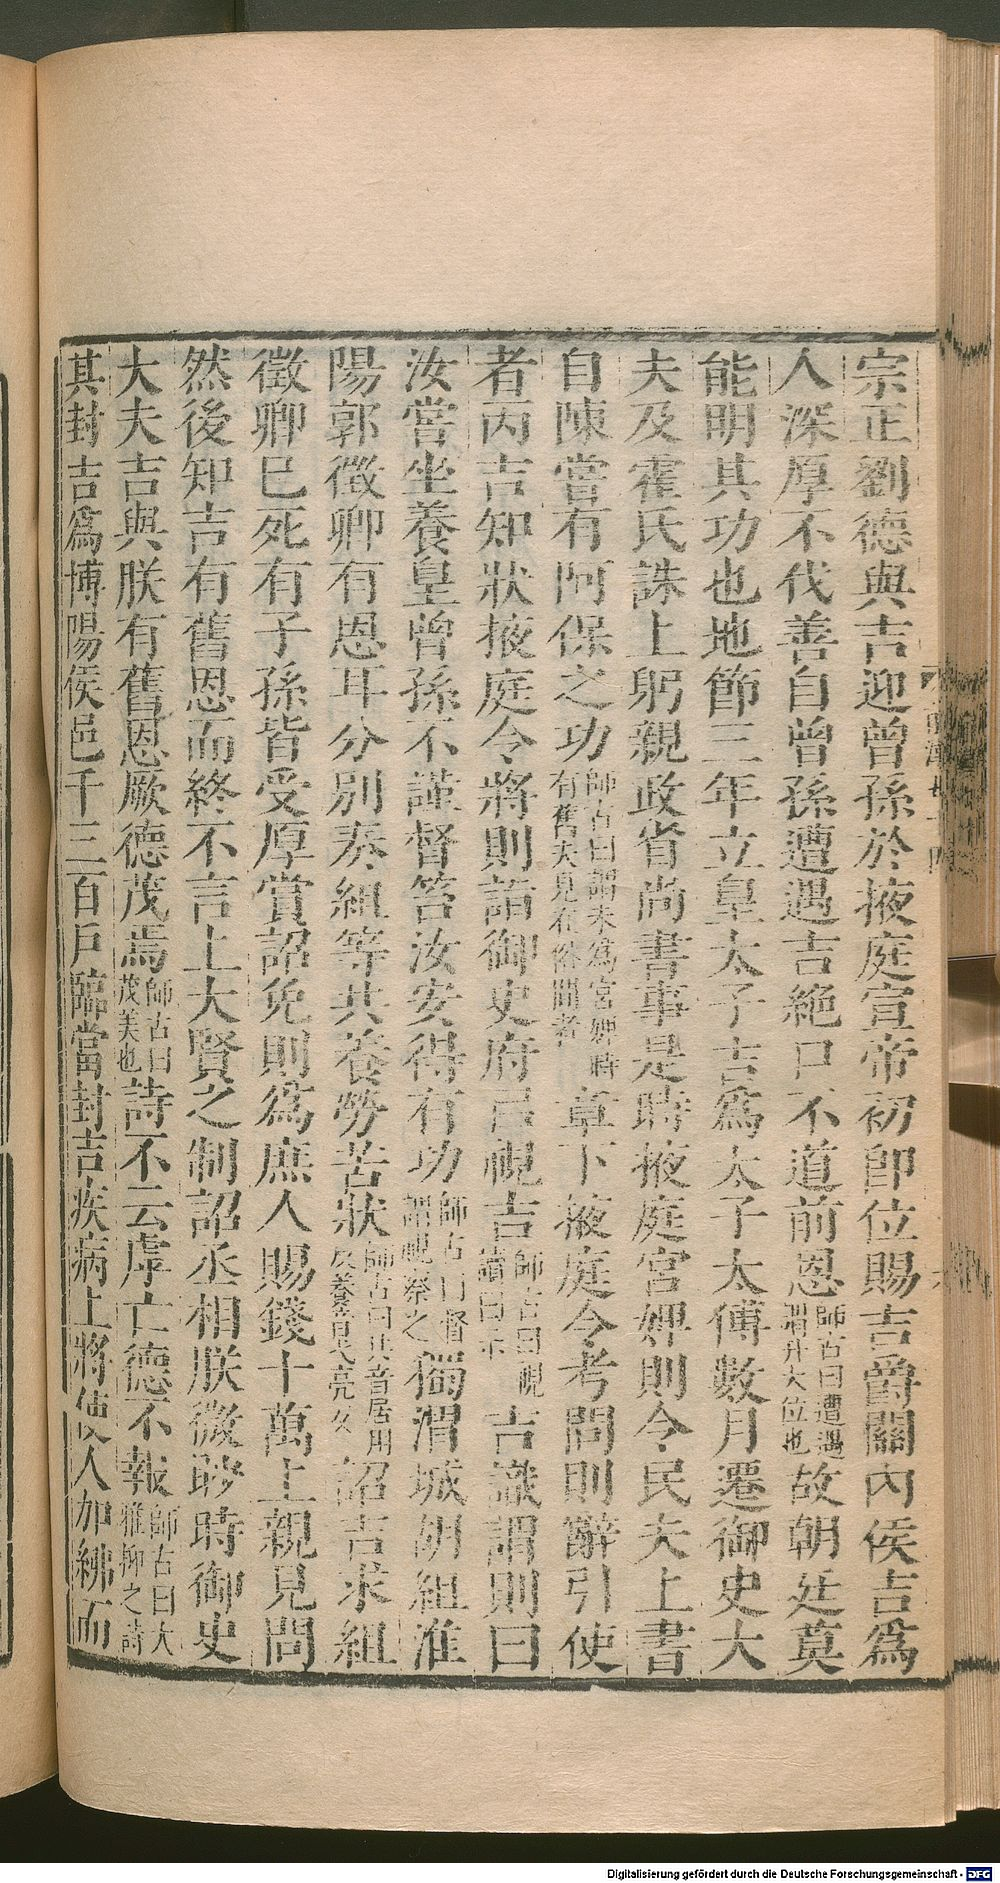 宗正劉德與吉迎曾孫於掖庭宣帝初卽位賜吉爵關內侯吉爲
人深厚不伐善自曾孫遭遇吉絶口不道前恩師古曰遭遇謂升大位也故朝廷莫
能明其功也地節三年立皇太子吉爲太子太傅數月遷御史大
夫及霍氏誅上躬親政省尚書事是時掖庭宮婢則令民夫上書
自陳嘗有阿保之功師古曰謂未爲宮婢時有舊夫見在俗閒者章下掖庭令考問則辭引使
者丙吉知狀掖庭令將則詣御史府㠯視吉師古曰視讀曰示吉識謂則曰
汝嘗坐養皇曾孫不謹督笞汝安得有功師古曰督謂視察之獨渭城胡組淮
陽郭徵卿有恩耳分別奏組等共養勞苦狀師古曰共音居用反養音弋亮反詔吉求組
徵卿已死有子孫皆受厚賞詔免則爲庶人賜錢十萬上親見問
然後知吉有舊恩而終不言上大賢之制詔丞相朕微眇時御史
大夫吉與朕有舊恩厥德茂焉師古曰茂美也詩不云虖亡德不報師古曰大雅抑之詩
其封吉爲博陽侯邑千三百戶臨當封吉疾病上將使人加紼而
Digitalisierung gefördert durch die Deutsche Forschungsgemeinschaft - DFG